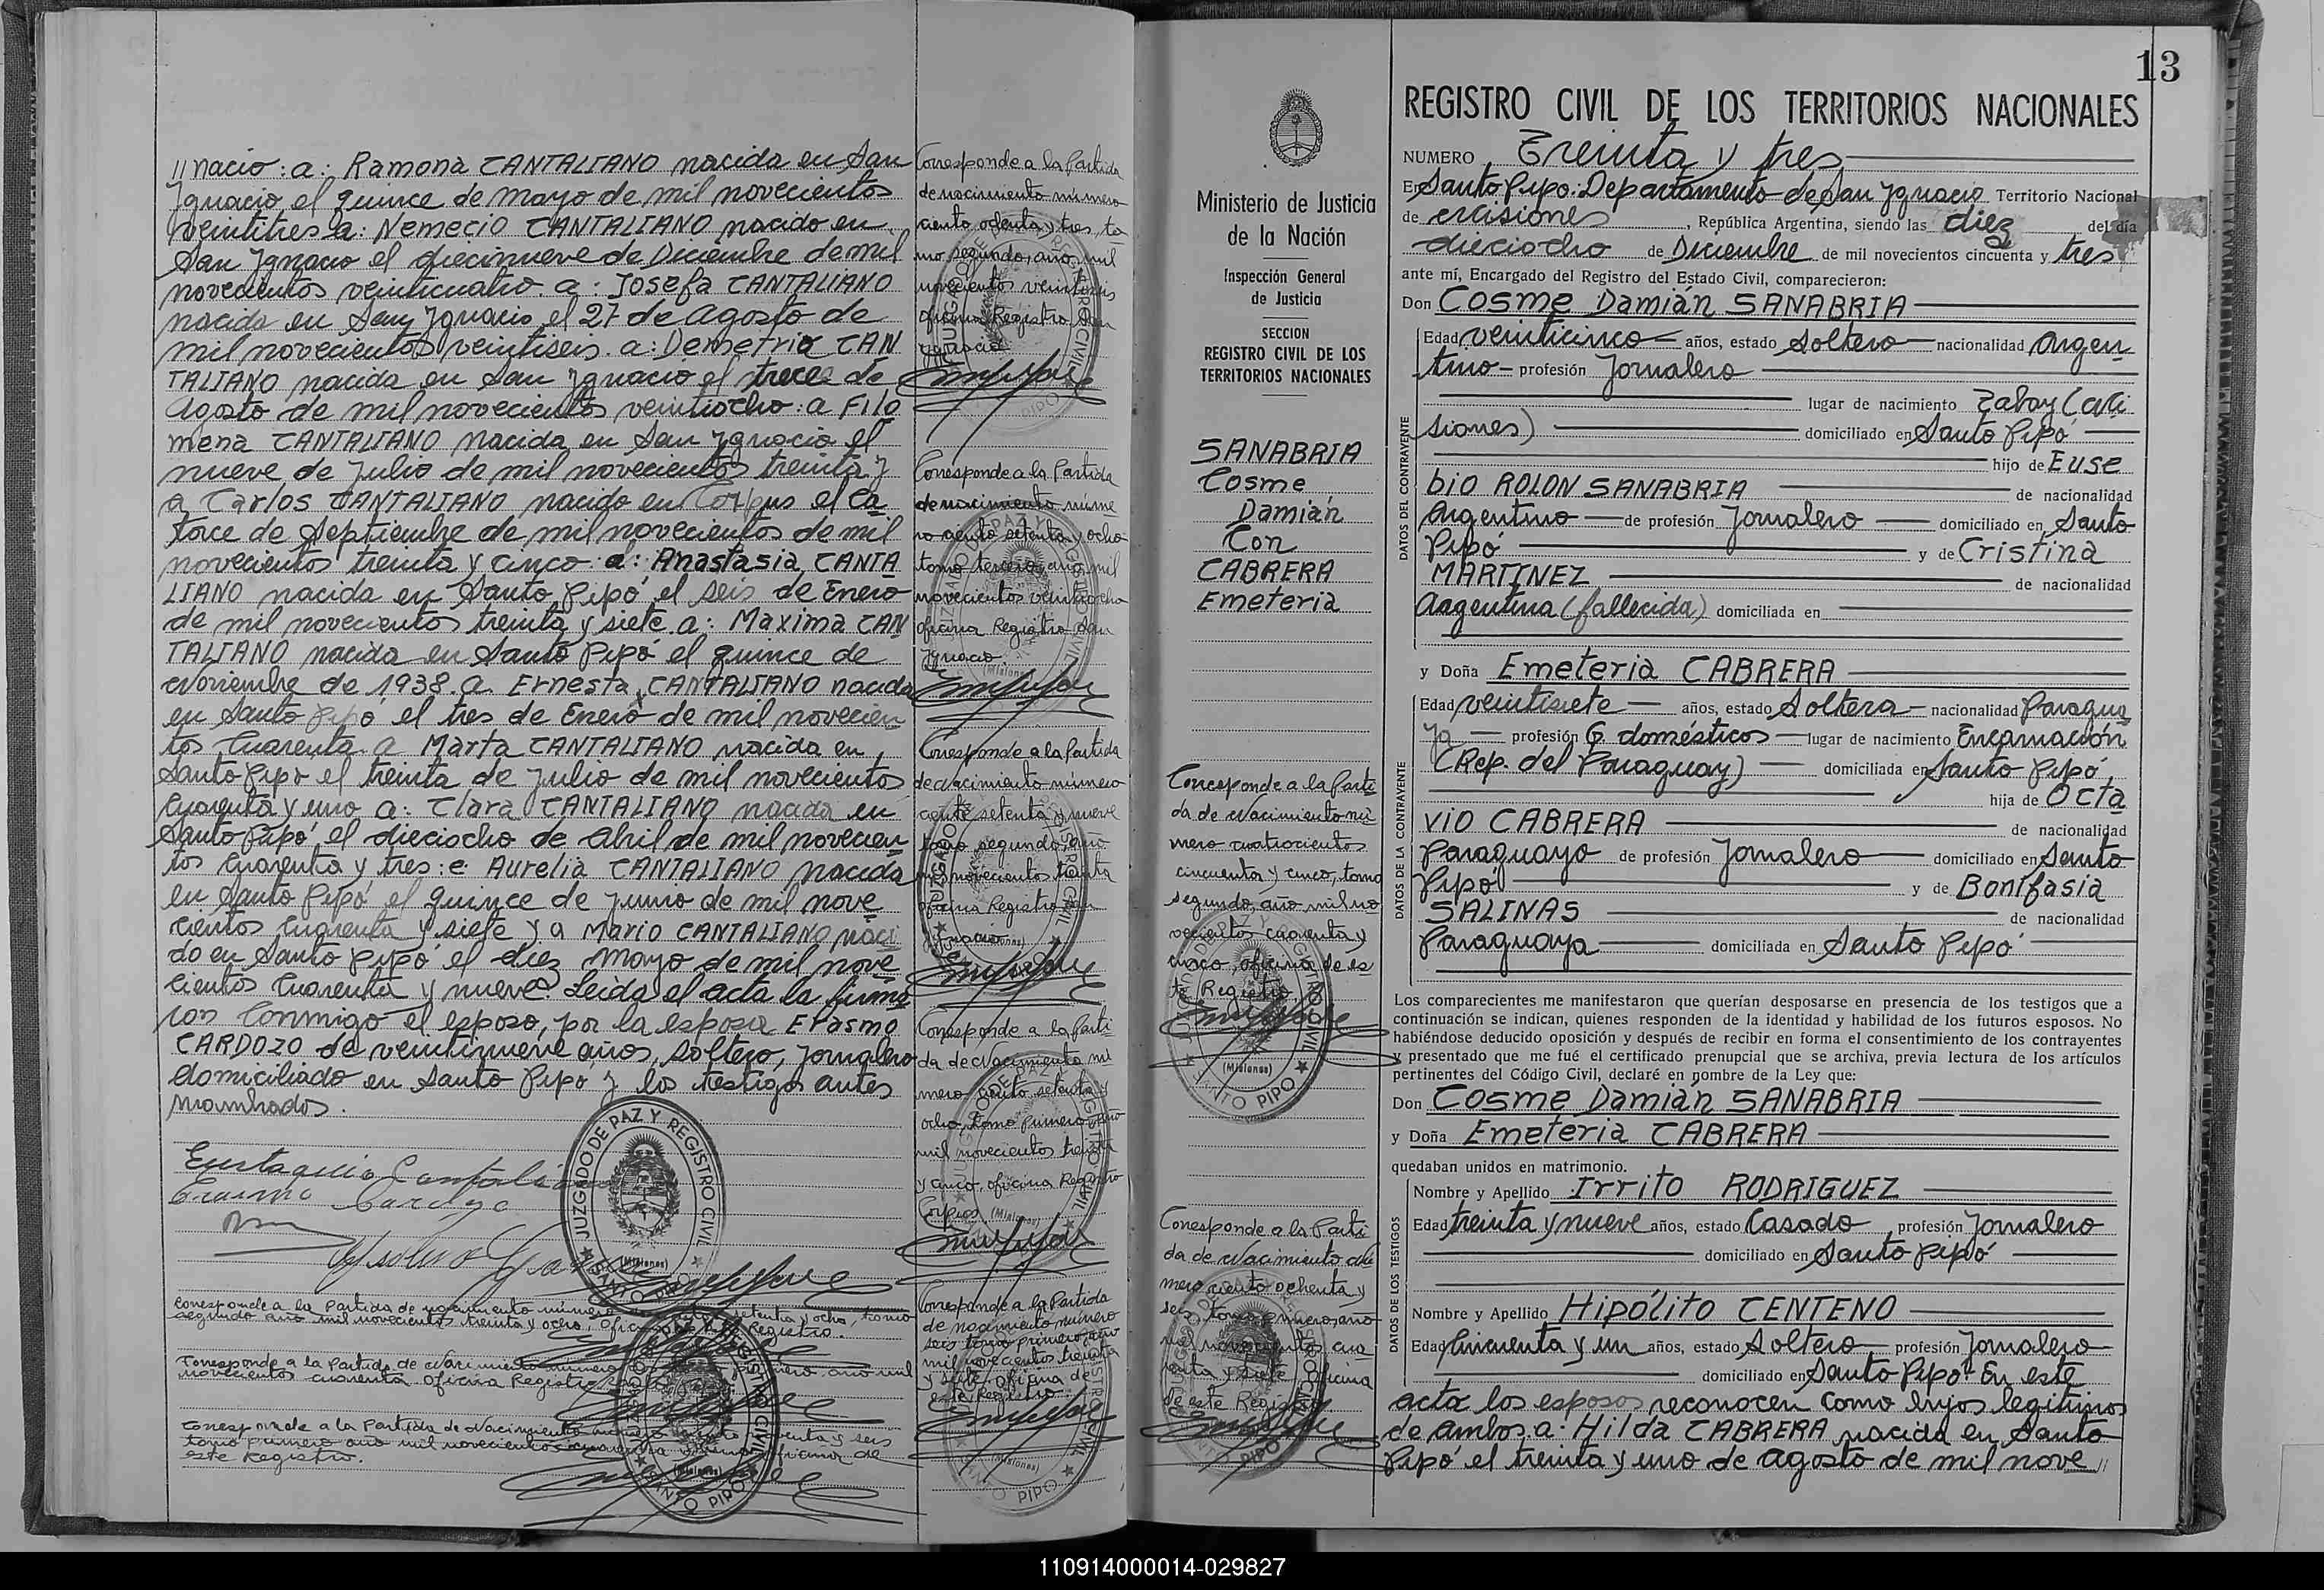 // nacio: a: Ramona CANTALIANO nacida en San
Ignacio el quince de mayo de mil novecientos
veintitres a: Nemecio CANTALIANO nacido en
San Ignacio el diecinueve de Diciembre de mil
novecientos veinticuatro. a: Josefa CANTALIANO
nacida en San Ignacio, el 27 de agosto de
mil novecientos veintiseis. a: Demetria CAN
TALIANO nacida en San Ignacio el trece de
agosto de mil novecientos veintiocho: a Filo
mena CANTALIANO nacida en San Ignacio el
nueve de Julio de mil novecientos treinta y
a Carlos CANTALIANO nacido en Corpus el ca
torce de Septiembre de mil novecientos de mil
novecientos treinta y cinco a: Anastasia CANTA
LIANO nacida en Santo Pipó el seis de Enero
de mil novecientos treinta y siete a: Maxima CAN
TALIANO nacida en Santo Pipó el quince de
Noviembre de 1938. a Ernesta CANTALIANO nacida
en Santo Pipó el tres de Enero de mil novecien
tos cuarenta a Marta CANTALIANO nacida en
Santo Pipó el treinta de Julio de mil novecientos
cuarenta y uno a: Clara CANTALIANO nacida en
Santo Pipó el dieciocho de Abril de mil novecien
tos cuarenta y tres: e Aurelia CANTALIANO nacida
en Santo Pipó el quince de Junio de mil nove
cientos cuarenta y siete y a Mario CANTALIANO naci
do en Santo Pipó el diez mayo de mil nove
cientos cuarenta y nueve. Leida el acta la firma
ron conmigo el esposo, por la esposa Erasmo
CARDOZO de veintinueve años, soltero, Jornalero
domiciliado en Santo Pipó y los testigos antes
nombrados.
Eustaquio Cantaliano
Erasmo Cardozo
JUZGADO DE PAZ Y REGISTRO CIVIL
(Misiones)
SANTO PIPO
Corresponde a la Partida de nacimiento número setenta y ocho, tomo
segundo año mil novecientos treinta y ocho, Oficina Registro.
Corresponde a la Partida de Nacimiento número año mil
novecientos cuarenta Oficina Registro
Corresponde a la Partida de Nacimiento número y seis
tomo primero año mil novecientos cuarenta oficina de
este Registro.
Corresponde a la Partida
de nacimiento número
ciento ochenta y tres, to
mo segundo, año mil
novecientos veintiseis
oficina Registro San
Ignacio
Corresponde a la Partida
de nacimiento núme
ro ciento setenta y ocho
tomo tercero, año mil
novecientos veintiocho
oficina Registro San
Ignacio.
Corresponde a la Partida
de Nacimiento número
ciento setenta y nueve
tomo segundo, año
mil novecientos treinta
oficina Registro San
Ignacio
Corresponde a la Parti
da de Nacimiento nú
mero ciento setenta y
ocho, tomo primero año
mil novecientos treinta
y cinco, oficina Registro
Corpus
Corresponde a la Partida
de nacimiento número
seis tomo primero, año
mil novecientos treinta
y siete oficina de
este Registro.
Ministerio de Justicia
de la Nación
Inspección General
de Justicia
SECCION
REGISTRO CIVIL DE LOS
TERRITORIOS NACIONALES
SANABRIA
Cosme
Damián
Con
CABRERA
Emeteria
Corresponde a la Parti
da de Nacimiento nú
mero cuatrocientos
cincuenta y cinco, tomo
segundo, año mil no
vecientos cuarenta y
cinco, oficina de es
te Registro
Corresponde a la Parti
da de Nacimiento nú
mero ciento ochenta y
seis, tomo primero, año
mil novecientos cua
renta y siete oficina
de este Registro
13
REGISTRO CIVIL DE LOS TERRITORIOS NACIONALES
NUMERO Treinta y tres
En Santo Pipo: Departamento de San Ignacio Territorio Nacional
de Misiones, República Argentina, siendo las diez del día
dieciocho de Diciembre de mil novecientos cincuenta y tres
ante mí, Encargado del Registro del Estado Civil, comparecieron:
Don Cosme Damián SANABRIA
DATOS DEL CONTRAYENTE
Edad veinticinco años, estado soltero nacionalidad Argen
tino profesión Jornalero
lugar de nacimiento Zabay (Mi
siones) domiciliado en Santo Pipó
hijo de Euse
bio ROLON SANABRIA de nacionalidad
Argentino de profesión Jornalero domiciliado en Santo
Pipó y de Cristina
MARTINEZ de nacionalidad
Argentina (fallecida) domiciliada en
y Doña Emeteria CABRERA
DATOS DE LA CONTRAYENTE
Edad veintisiete años, estado Soltera nacionalidad Paragua
ya profesión Q. domésticos lugar de nacimiento Encarnación
(Rep. del Paraguay) domiciliada en Santo Pipó
hija de Octa
vio CABRERA de nacionalidad
Paraguayo de profesión Jornalero domiciliado en Santo
Pipó y de Bonifasia
SALINAS de nacionalidad
Paraguaya domiciliada en Santo Pipó
Los comparecientes me manifestaron que querían desposarse en presencia de los testigos que a
continuación se indican, quienes responden de la identidad y habilidad de los futuros esposos. No
habiéndose deducido oposición y después de recibir en forma el consentimiento de los contrayentes
y presentado que me fué el certificado prenupcial que se archiva, previa lectura de los artículos
pertinentes del Código Civil, declaré en nombre de la Ley que:
Don Cosme Damián SANABRIA
y Doña Emeteria CABRERA
quedaban unidos en matrimonio.
DATOS DE LOS TESTIGOS
Nombre y Apellido Irrito RODRIGUEZ
Edad treinta y nueve años, estado Casado profesión Jornalero
domiciliado en Santo Pipó
Nombre y Apellido Hipólito CENTENO
Edad cincuenta y un años, estado Soltero profesión Jornalero
domiciliado en Santo Pipó. En este
acta los esposos reconocen como hijos legitimos
de ambos a Hilda CABRERA nacida en Santo
Pipó el treinta y uno de agosto de mil nove //
110914000014-029827